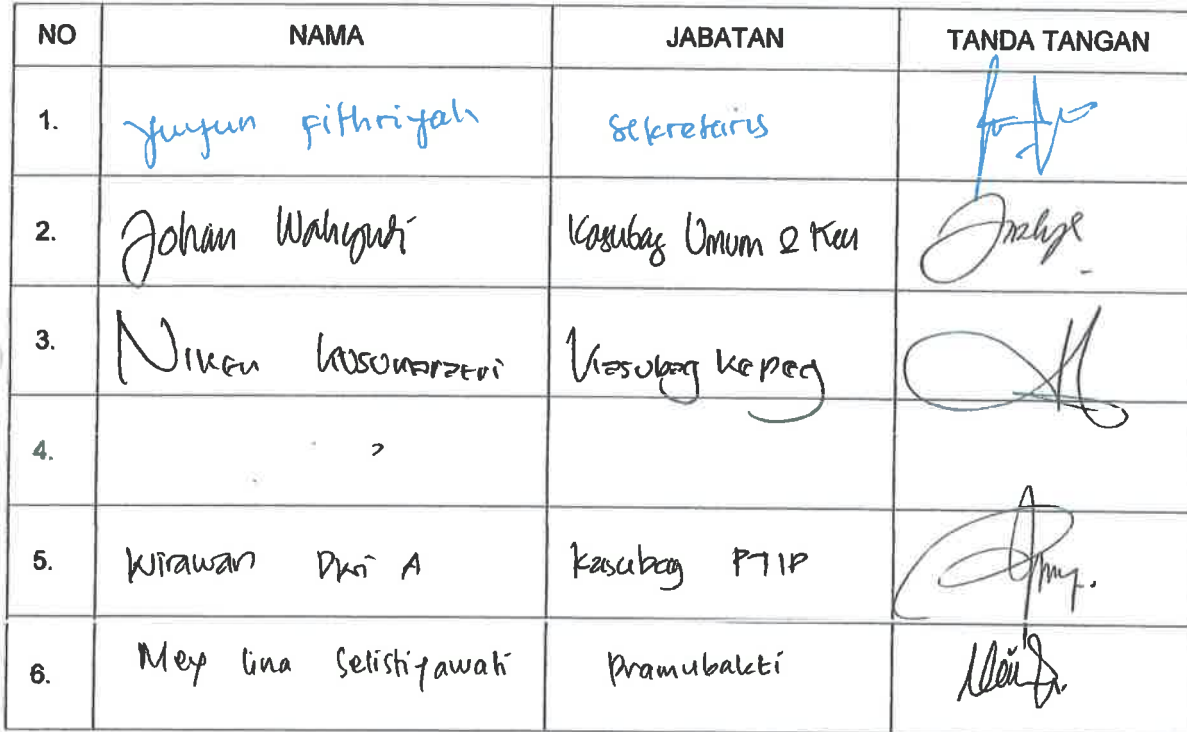 NO NAMA JABATAN TANDA TANGAN
1. Yuyun Fithriyah Sekretaris
2. Johan Wahyudi Kasubag Umum & Keu
3. Niken Kasubag Kepeg
4.
5. Wirawan Dwi A Kasubag PTIP
6. Mey Lina Selistiyawati Pramubakti